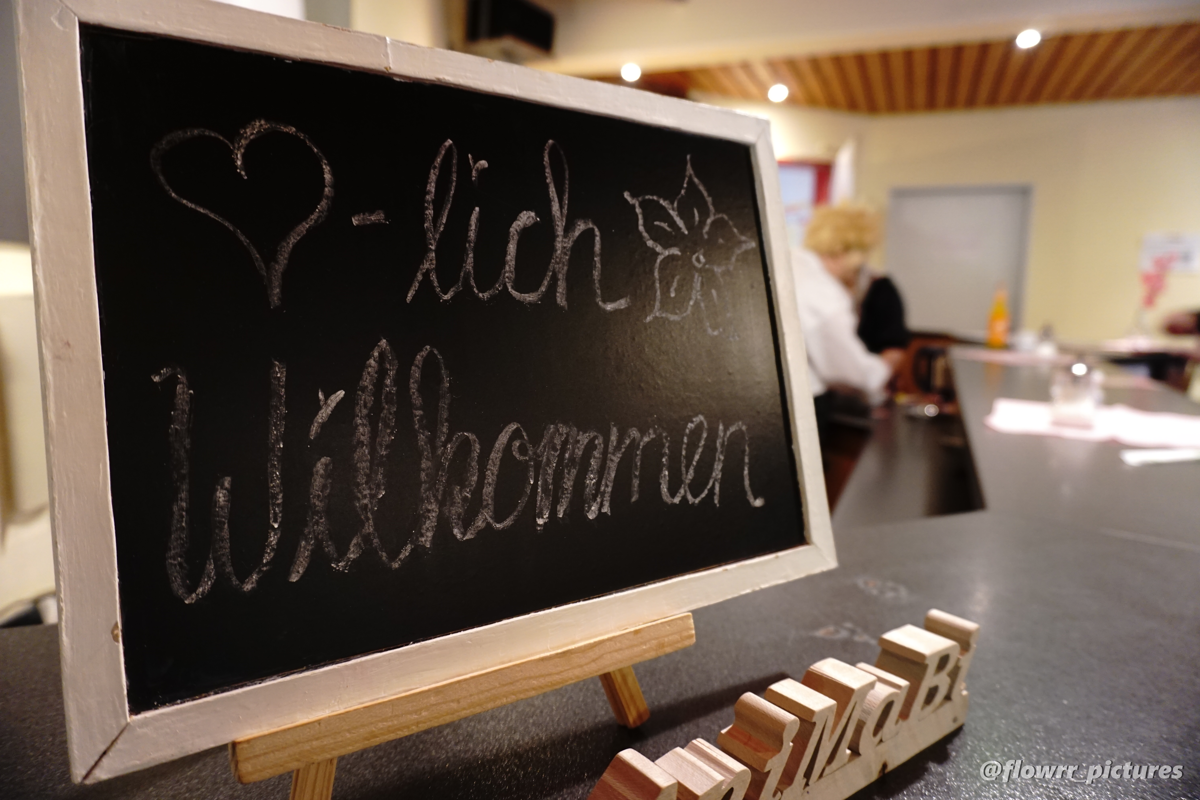 -lich
Wilkommen
MaBi
@flowrr_pictures